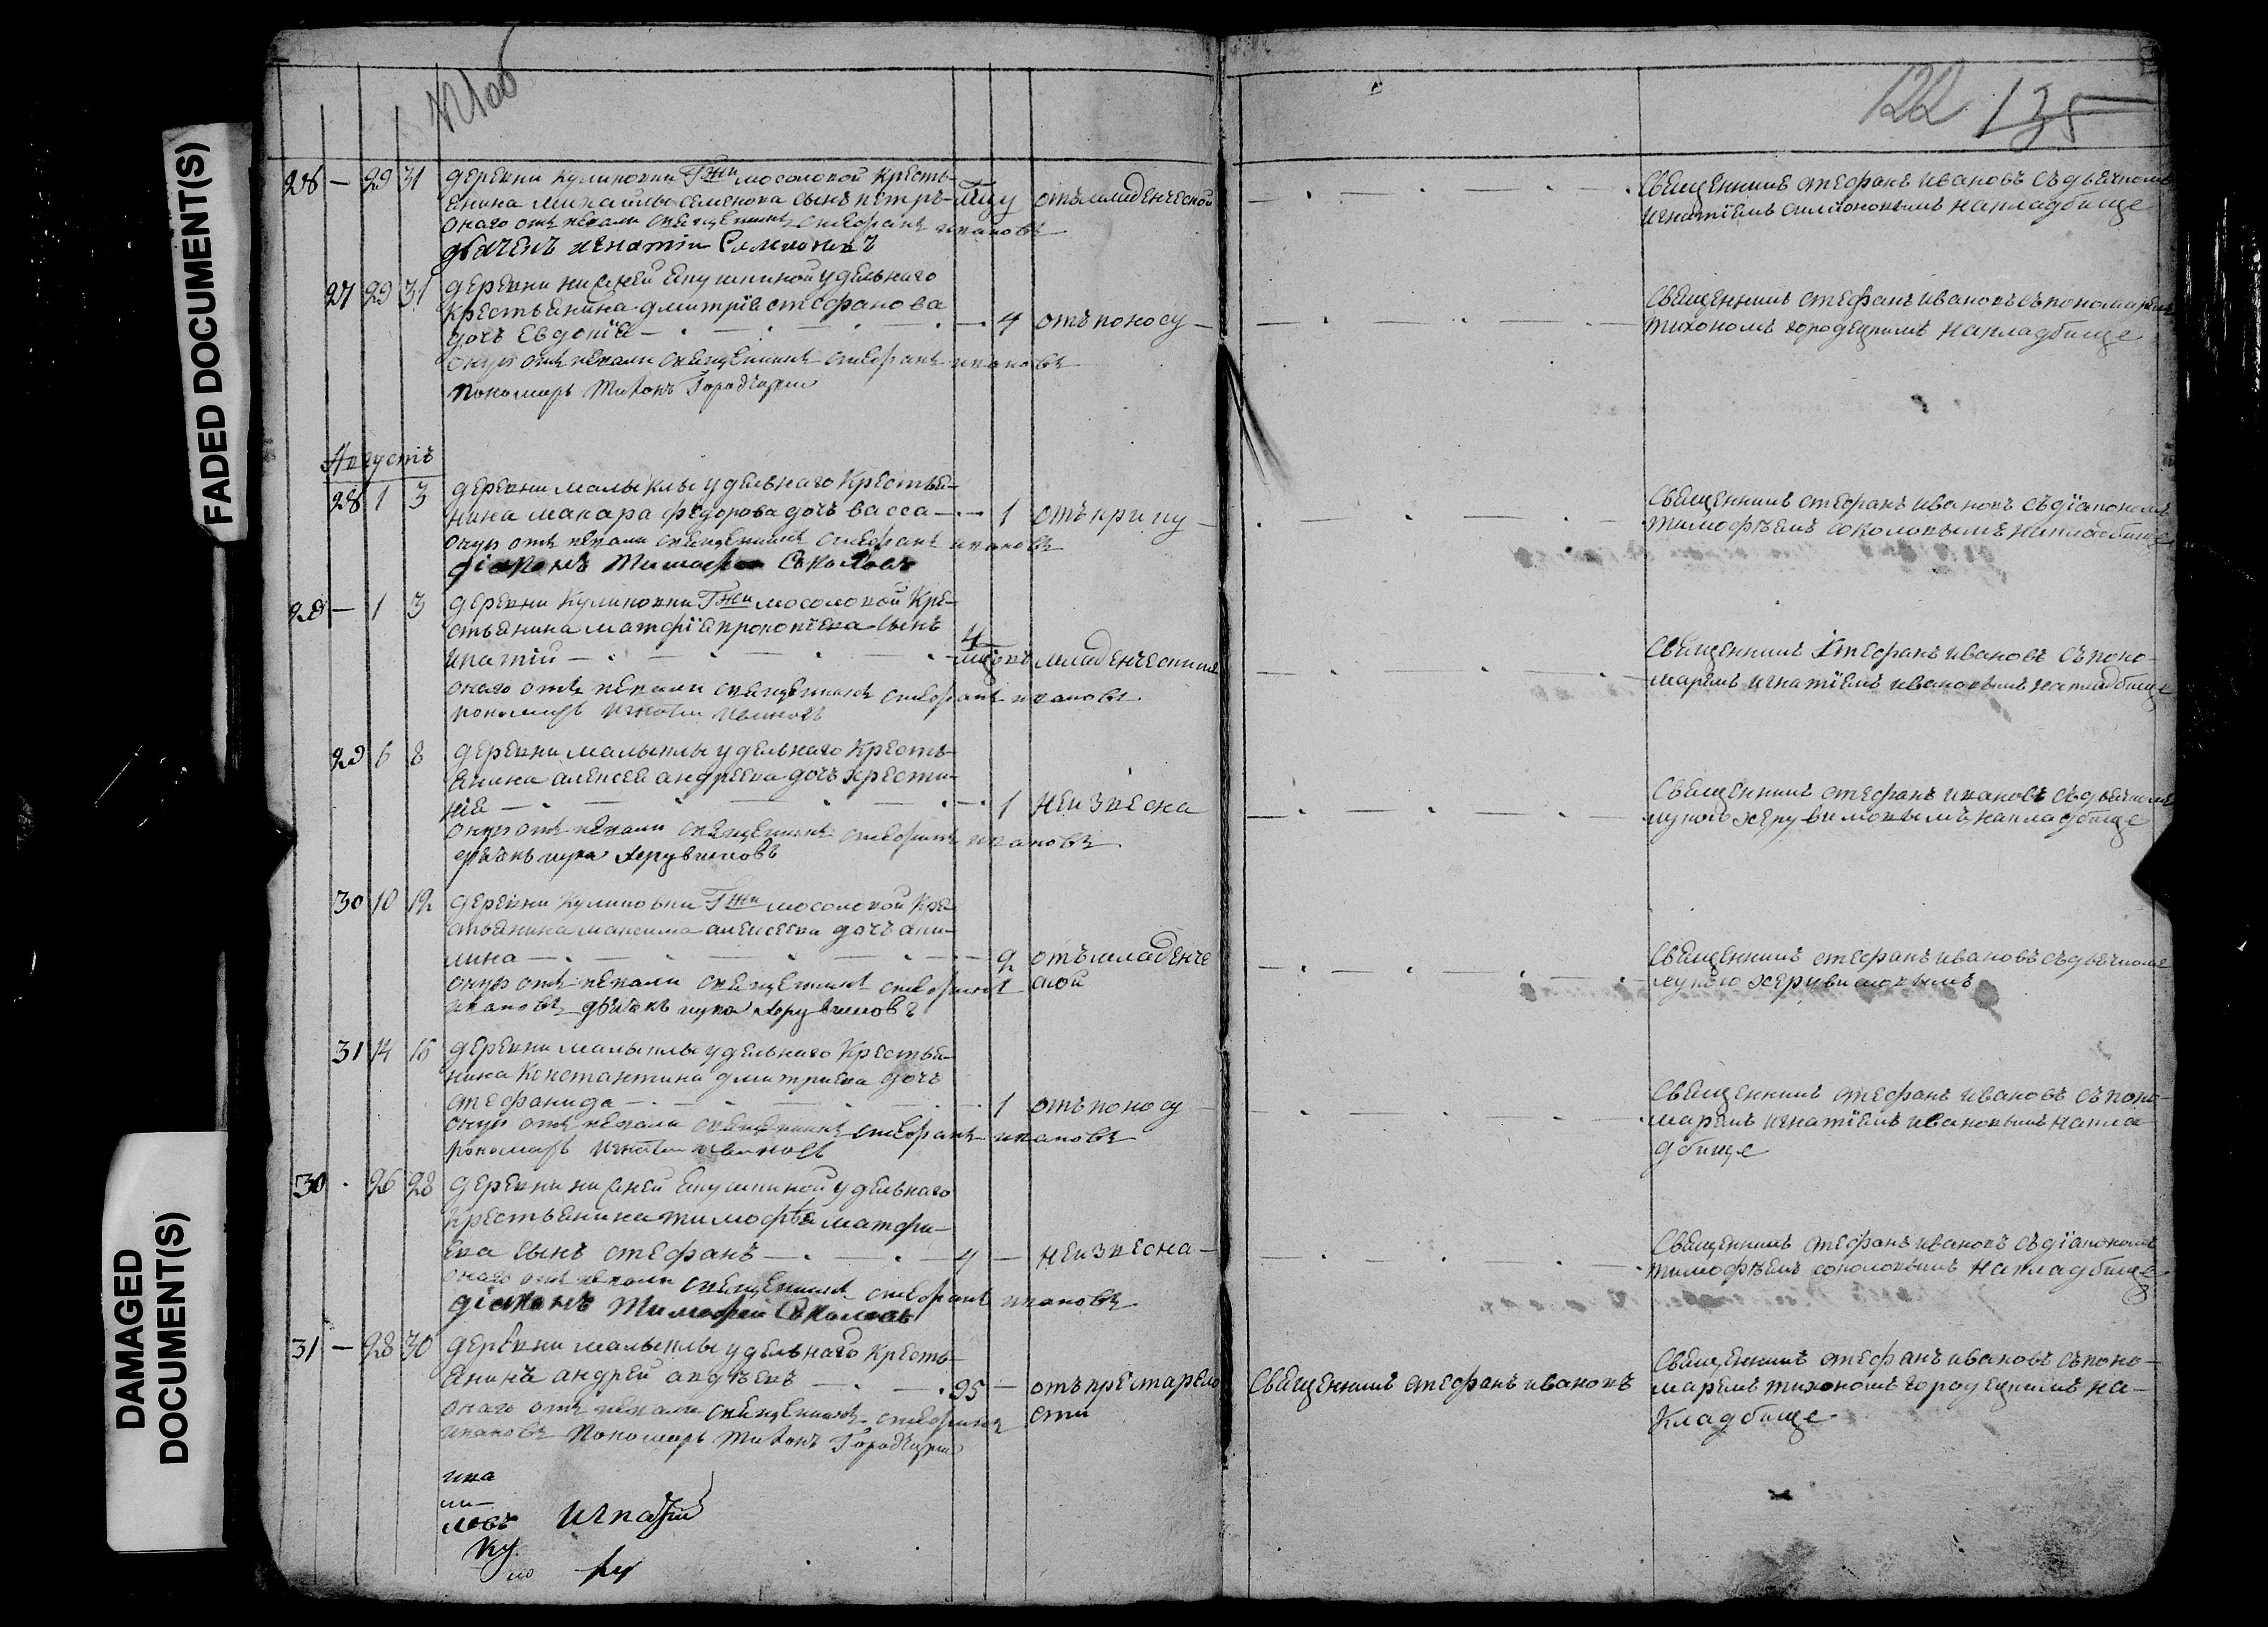 FADED DOCUMENT(S)
DAMAGED
DOCUMENT(S)
122 135
28 — 29 31 деревни Куликовки Гжи мосоловой кресть-
янина михаилы семенова сынъ петръ отъ младенческой
онаго отпевали священникъ стефанъ ивановъ
дьячекъ игнатiй Симионовъ
священникъ стефанъ ивановъ съ дьячкомъ
игнатiемъ симiоновымъ на кладбище
27 29 31 деревни нижней Якушкиной удельнаго
крестьянина димитрiя стефанова
дочь Евдокiя — 4 отъ поносу
оную отпевали священникъ стефанъ ивановъ
пономарь Тихонъ Городецкий
священникъ стефанъ ивановъ съ пономаремъ
тихономъ городецкимъ на кладбище
Августъ
28 1 3 деревни малыклы удельнаго крестья-
нина макара федорова дочь васса — 1 отъ крику
оную отпевали священникъ стефанъ ивановъ
дiаконъ Тимофей Соколовъ
священникъ стефанъ ивановъ съ дiакономъ
тимофѣемъ соколовымъ на кладбище
29 — 1 3 деревни Куликовки Гжи мосоловой кре-
стьянина матфiя прокопiева сынъ
игнатiй — 4 младенческимъ
онаго отпевали священникъ стефанъ ивановъ
пономарь игнатiй ивановъ
священникъ стефанъ ивановъ съ поно-
маремъ игнатiемъ ивановымъ на кладбище
29 6 8 деревни малыклы удельнаго кресть-
янина алексея андреева дочь хрести-
нiя — 1 неизвесна
оную отпевали священникъ стефанъ ивановъ
дьячекъ лука херувимовъ
священникъ стефанъ ивановъ съ дьячкомъ
лукою херувимовымъ на кладбище
30 10 12 деревни Куликовки Гжи мосоловой кре-
стьянина максима алексеева дочь аки-
лина — 2 отъ младенче
оную отпевали священникъ стефанъ ской
ивановъ дьячекъ лука херувимовъ
священникъ стефанъ ивановъ съ дьячкомъ
лукою херувимовымъ
31 14 16 деревни малыклы удельнаго крестья-
нина Константина дмитриева дочь
стефанида — 1 отъ поносу
оную отпевали священникъ стефанъ ивановъ
пономарь игнатiй ивановъ
священникъ стефанъ ивановъ съ поно-
маремъ игнатiемъ ивановымъ на кла-
дбище
30 26 28 деревни нижней Якушкиной удельнаго
крестьянина тимофѣя матфи-
ева сынъ стефанъ — 4 — неизвесна
онаго отпевали священникъ стефанъ ивановъ
дiаконъ Тимофей Соколовъ
священникъ стефанъ ивановъ съ дiакономъ
тимофѣемъ соколовымъ на кладбище
31 — 28 30 деревни малыклы удельнаго кресть-
янинъ андрей — 95 — отъ престарело
онаго отпевали священникъ стефанъ сти
ивановъ Пономарь Тихонъ Городецкий
священникъ стефанъ ивановъ
священникъ стефанъ ивановъ съ поно-
маремъ тихономъ городецкимъ на-
кладбище
ива
ловъ игнатiй
ку